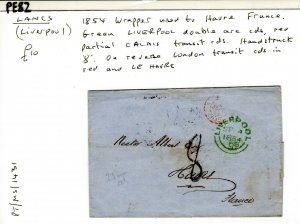 PE82
LANCS
(Liverpool)
£10
1854 Wrapper used to Havre France.
Green LIVERPOOL double arc cds, red
partial CALAIS transit cds. Handstruck
'8'. On reverse London transit cds in
red and LE HAVRE
LIVERPOOL
SP
1854
8
Havre
France